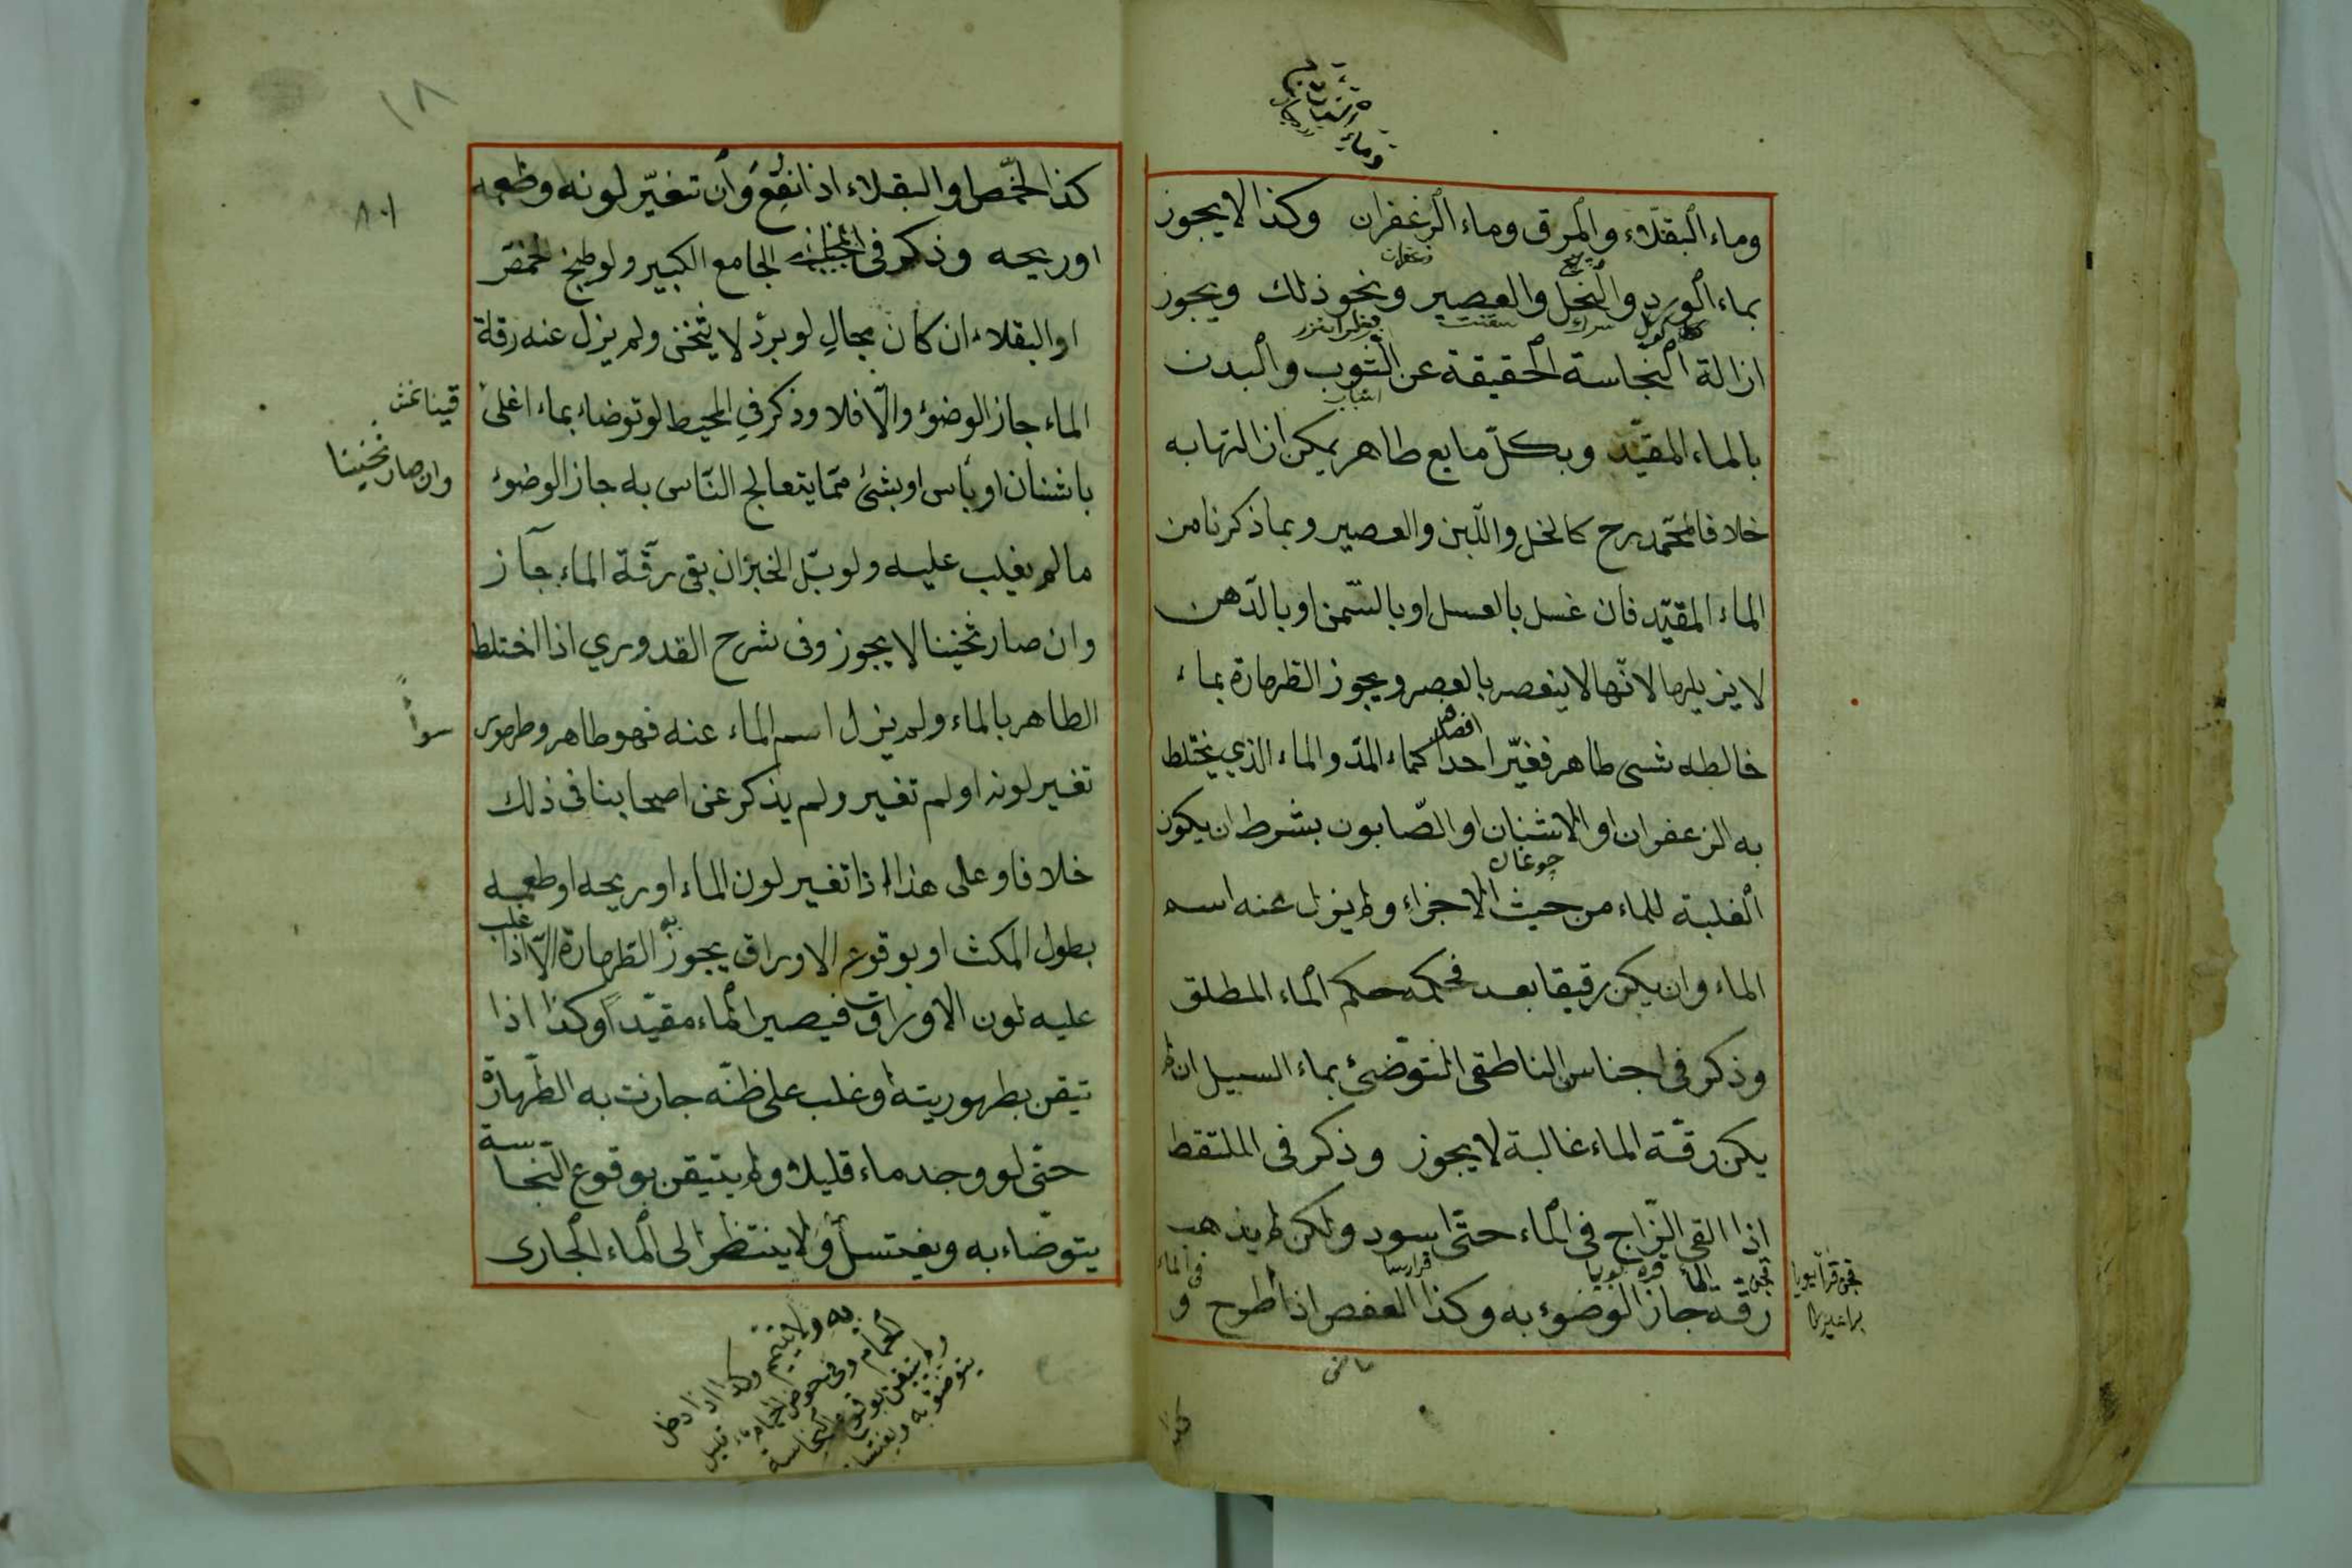 وماء البقلاء والمرق وماء الزعفران وكذا لا يجوز
بماء الورد والخل والعصير ونحو ذلك ويجوز
ازالة النجاسة الحقيقة عن الثوب والبدن
بالماء المقيّد وبكلّ مايع طاهر يمكن ازالتها به
خلافا لمحمّد رح كالخل واللّبن والعصير وبما ذكرنا من
الماء المقيّد فان غسل بالعسل او بالسّمن او بالدّهن
لا يزيلها لانّها لا ينعصر بالعصر ويجوز الطهارة بماء
خالطه شئ طاهر فغيّر احد اوصافه كماء المدّ والماء الذي يختلط
به الزعفران او الاشنان او الصّابون بشرط ان يكون
چوغان
الغلبة للماء من حيث الاجزاء ولم يزل عنه اسم
الماء وان يكن رقيقا بعد فحكمه حكم الماء المطلق
وذكر فى اجناس الناطقى التوضئ بماء السيل ان لم
يكن رقّة الماء غالبة لا يجوز وذكر فى الملتقط
اذا القى الزّاج فى الماء حتّى اسود ولكن لم يذهب
رقّة الماء جاز الوضوء به وكذا العفص اذا طرح فى الماء و
كذا
١٨
٨٠١
كذا الحمّص او البقلاء اذا نقع وان تغيّر لونه او طعمه
او ريحه وذكر فى الجامع الكبير ولو طبخ الحمّص
او البقلاء ان كان بحال لو برد لا يثخن ولم يزل عنه رقة
الماء جاز الوضوء والّا فلا وذكر في المحيط لو توضاء بماء اغلى
باشنان او بآس او بشئ ممّا يتعالج النّاس به جاز الوضوء
وان صار ثخينا
ما لم يغلب عليه ولو بلّ الخبز ان بقى رقّة الماء جاز
وان صار ثخينا لا يجوز وفى شرح القدوري اذا اختلط
الطاهر بالماء ولم يزل اسم الماء عنه فهو طاهر وطهور
سواءً
تغير لونه او لم تغير ولم يذكر عن اصحابنا فى ذلك
خلافا وعلى هذا اذا تغير لون الماء او ريحه او طعمه
بطول المكث او بوقوع الاوراق يجوز به الطهارة الّا اذا غلب
عليه لون الاوراق فيصير الماء مقيّدا وكذا اذا
تيقن بطهوريته او غلب على ظنّه جازت به الطّهارة
حتّى لو وجد ماء قليلا ولم يتيقن بوقوع النّجاسة
يتوضّاء به ويغتسل ولا ينتظر الى الماء الجارى
به ولا يتيمم وكذا اذا دخل
الحمام وفى حوض الحمام ماء قليل
ولم يتيقن بوقوع النجاسة
يتوضؤ به ويغتسل